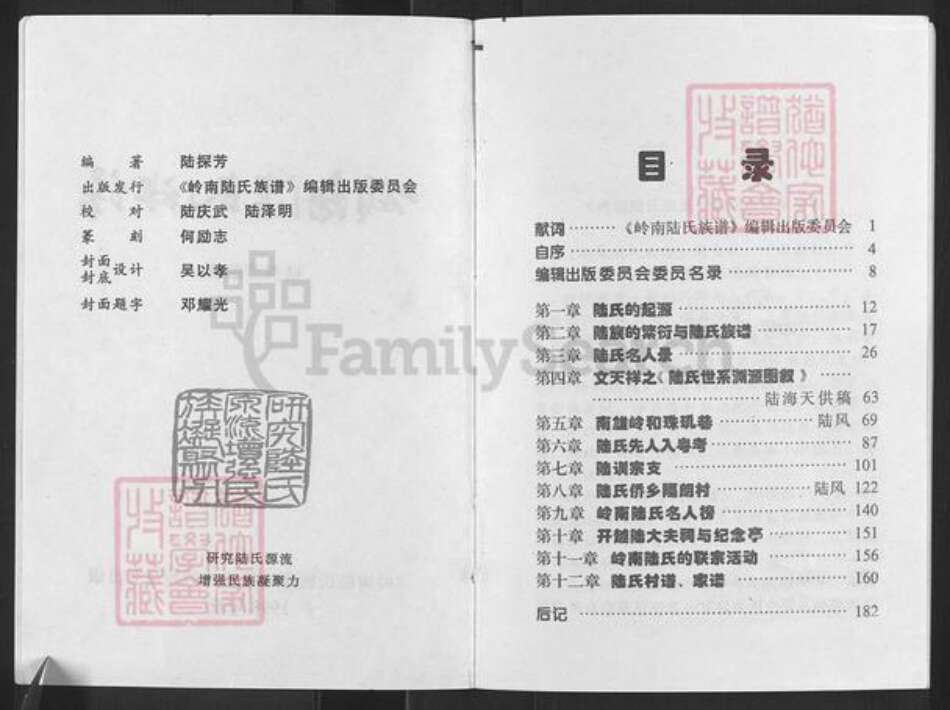 编 著 陆探芳
出版发行 《岭南陆氏族谱》编辑出版委员会
校 对 陆庆武 陆泽明
篆 刻 何励志
封面
封底 设计 吴以孝
封面题字 邓耀光
FamilySearch
研究陆氏源流
增强民族凝聚力
目 录
献词………《岭南陆氏族谱》编辑出版委员会 1
自序……………………………………… 4
编辑出版委员会委员名录………………… 8
第一章 陆氏的起源……………………… 12
第二章 陆族的繁衍与陆氏族谱…………… 17
第三章 陆氏名人录……………………… 26
第四章 文天祥之《陆氏世系渊源图叙》……
………………………………陆海天供稿 63
第五章 南雄岭和珠玑巷……………陆风 69
第六章 陆氏先人入粤考…………………… 87
第七章 陆训宗支………………………… 101
第八章 陆氏侨乡隔朗村……………陆风 122
第九章 岭南陆氏名人榜………………… 140
第十章 开越陆大夫祠与纪念亭…………… 151
第十一章 岭南陆氏的联宗活动…………… 156
第十二章 陆氏村谱、家谱………………… 160
后记……………………………………… 182